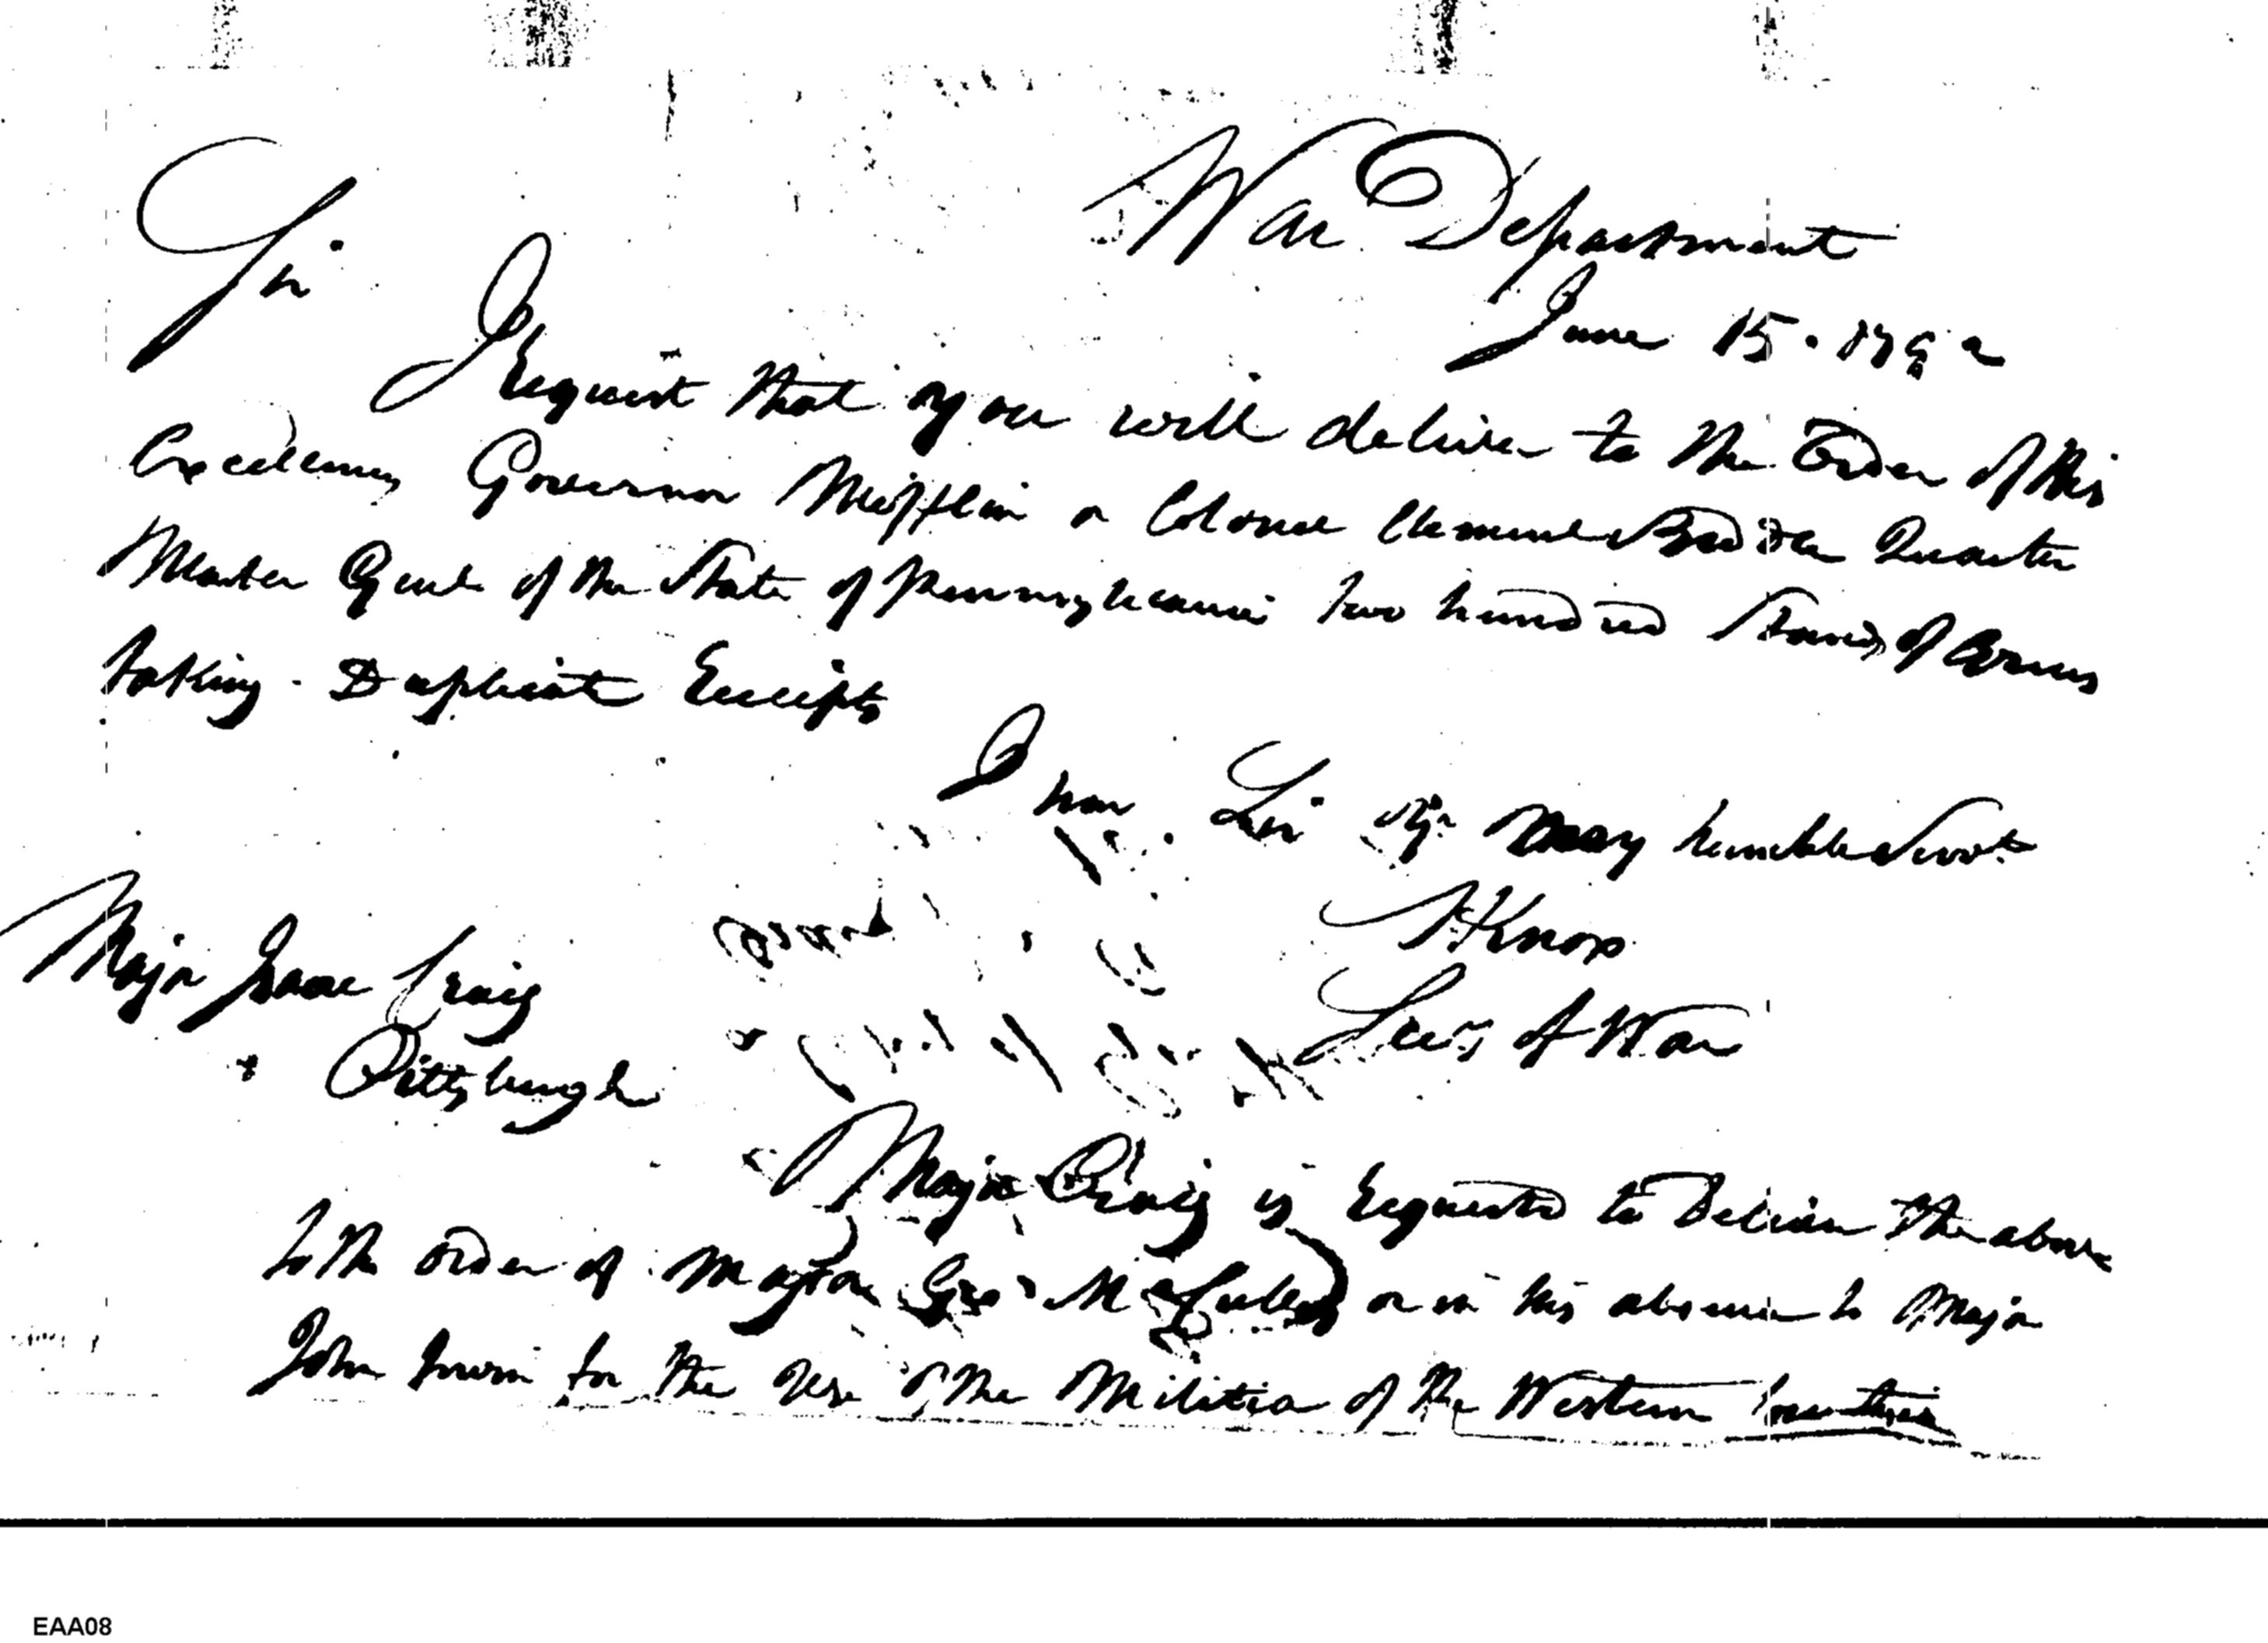 War Department
June 15. 1792
Sir
I request that you will deliver to the order of his
Excellency Governor Mifflin or Colonel Clement Biddle Quarter
Master Genl of the State of Pennsylvania two hundred Stands of Arms
taking Duplicate receipts
I am Sir Yr Most humble Servt
H Knox
Secy of War
Major Isaac Craig
Pittsburgh
Major Craig is requested to deliver the above
to the order of Major Geo McCully or in his absence to Major
John Irwin for the use of the Militia of the Western Counties
EAA08